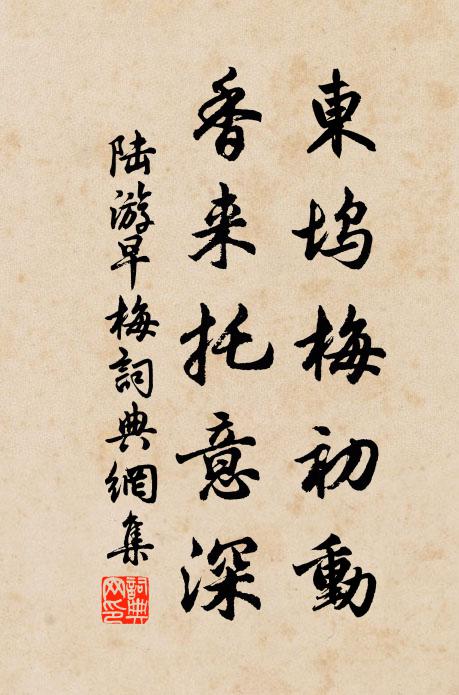 東塢梅初動
香来托意深
陆游早梅詞典網集
詞典网印